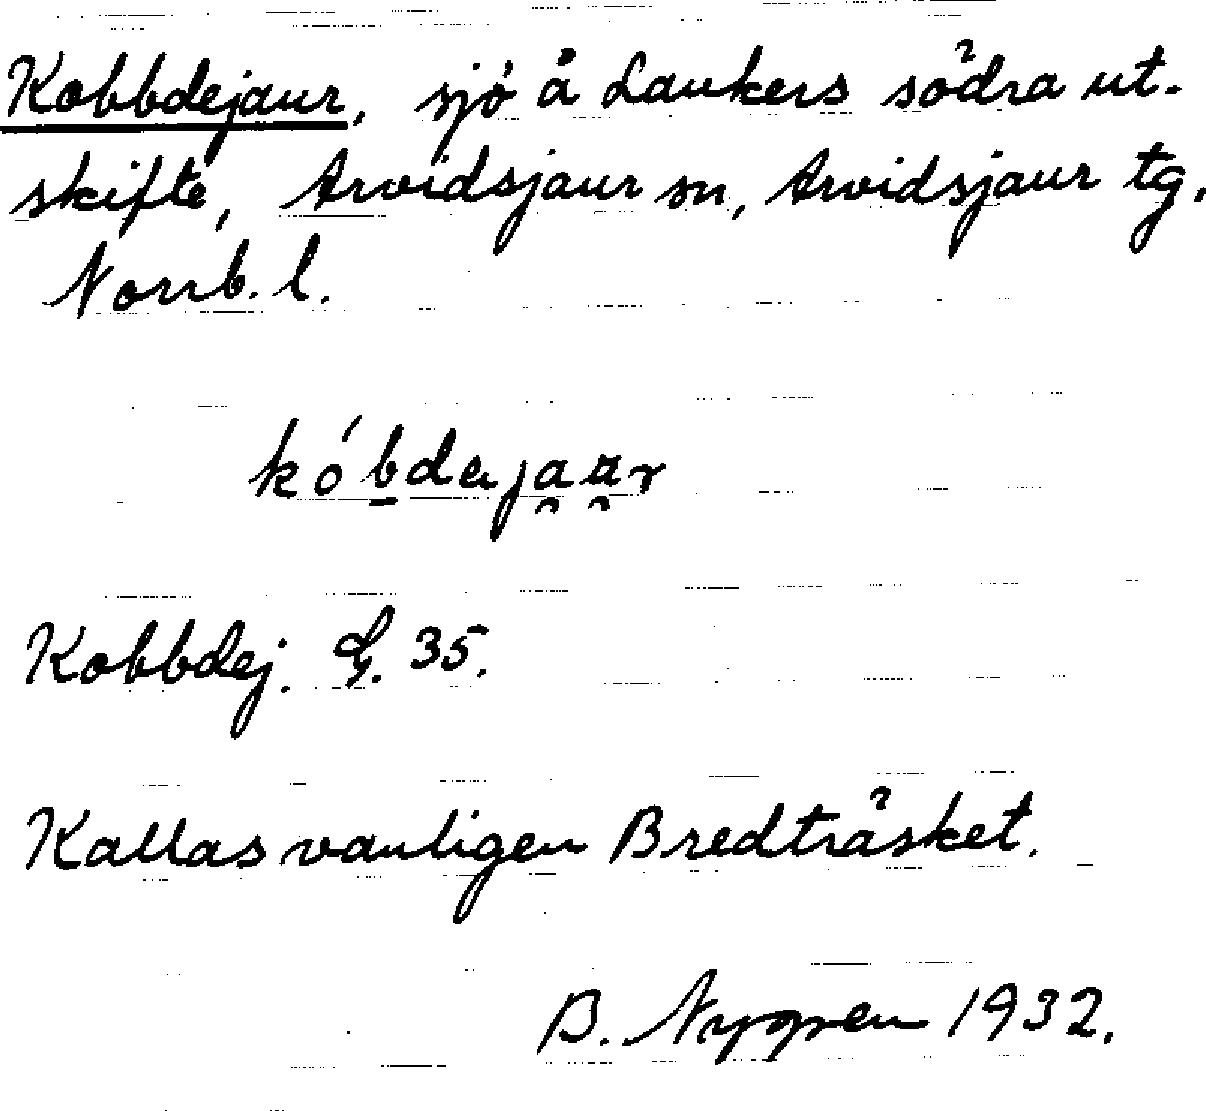 Kobbdejaur, sjö å Laukers södra ut-
skifte, Arvidsjaur sn, Arvidsjaur tg,
Norrb. l.
kób̲deja̯a̯r
Kobbdej. G. 35.
Kallas vanligen Bredträsket.
B. Nygren 1932.